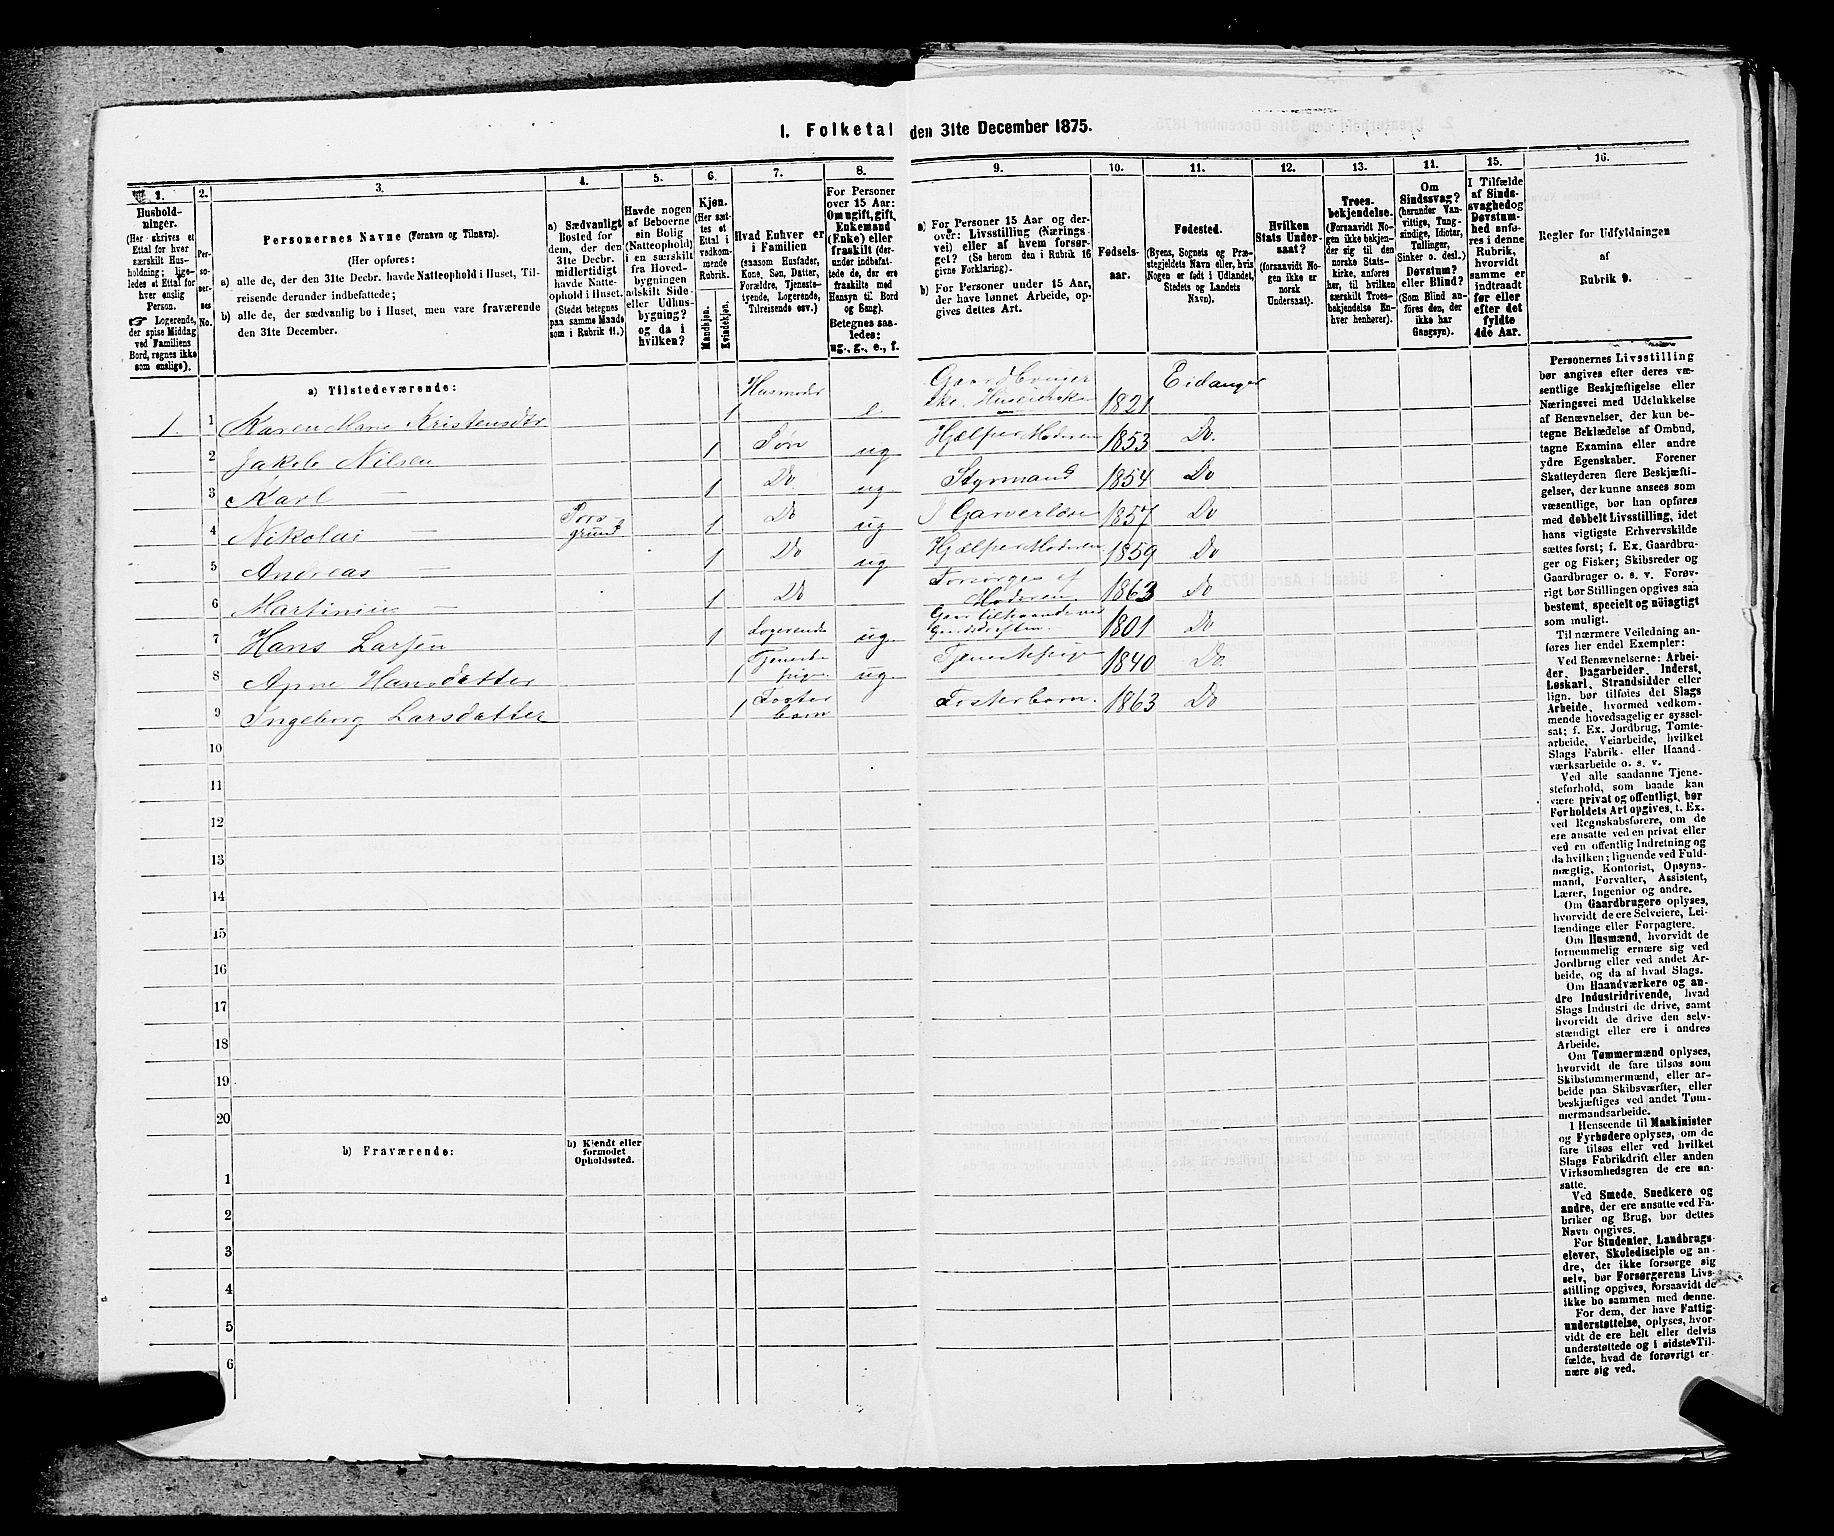 1. Folketal den 31te December 1875.
1.
Husholdninger.
(Her skrives et
Ettal for hver
særskilt Husholdning; ligeledes
et Ettal for
hver enslig
Person.
Logerende,
der spise Middag
ved Familiens
Bord, regnes ikke
som enslige).
2.
Personernes
No.
3.
Personernes Navne (Fornavn og Tilnavn).
(Her opføres:
a) alle de, der den 31te Decbr. havde Natteophold i Huset, Tilreisende
derunder indbefattede;
b) alle de, der sædvanlig bo i Huset, men vare fraværende
den 31te December.
4.
a) Sædvanligt
Bosted for
dem, der den
31te Decbr.
midlertidigt
havde Natteophold
i Huset.
(Stedet betegnes
paa samme Maade
som i Rubrik 11.)
5.
Havde nogen
af Beboerne
sin Bolig
(Natteophold)
i en særskilt
fra Hovedbygningen
adskilt Side-
eller Udhusbygning?
og da i
hvilken?
6.
Kjøn.
(Her sættes
et
Ettal i
vedkommende
Rubrik.
Mandkjøn.
Kvindekjøn.
7.
Hvad Enhver er
i Familien
(saasom Husfader,
Kone, Søn, Datter,
Forældre, Tjenestetyende,
Logerende,
Tilreisende osv.)
8.
For Personer
over 15 Aar:
Om ugift, gift,
Enkemand
(Enke) eller
fraskilt (derunder
indbefattede
de, der ere
fraskilte med
Hensyn til Bord
og Seng).
Betegnes saaledes:
ug., g., e., f.
9.
a) For Personer 15 Aar og derover:
Livsstilling (Næringsvei)
eller af hvem forsørget?
(Se herom den i Rubrik 16
givne Forklaring).
b) For Personer under 15 Aar,
der have lønnet Arbeide, opgives
dettes Art.
10.
Fødselsaar.
11.
Fødested.
(Byens, Sognets og Præstegjeldets
Navn eller, hvis
Nogen er født i Udlandet,
Stedets og Landets
Navn).
12.
Hvilken
Stats Undersaat?
(forsaavidt Nogen
ikke er
norsk
Undersaat).
13.
Troesbekjendelse.
(Forsaavidt Nogen
ikke bekjender
sig til den
norske Statskirke,
anføres
her, til hvilken
særskilt Troesbekjendelse
Enhver
henhører).
14.
Om
Sindssvag?
(herunder Vanvittige,
Tungsindige,
Idioter,
Tullinger,
Sinker o. desl.)
Døvstum?
eller Blind?
(Som Blind anføres
den, der
ikke har
Gangsyn).
15.
I Tilfælde
af Sindssvaghed
og
Døvstumhed
anføres
i denne
Rubrik,
hvorvidt
samme er
indtraadt
før eller
efter det
fyldte
4de Aar.
16.
Regler for Udfyldningen
af
Rubrik 9.
a) Tilstedeværende:
1. 1 Karen Marie Kristensdtr 1 Husmoder e Eidanger 1821
2 Jakob Nilsen 1 Søn ug Hjælper Moderen 1853 Do.
3 Karl — 1 Do ug Styrmand 1854 Do
4 Nikolai — Porsgrund 1 Do ug Garverlære 1857 Do
5 Andreas — 1 Do ug Hjælper Moderen 1859 Do
6 Martinius — 1 Do Forsørges af Moderen 1863 Do
7 Hans Larsen 1 Logerende ug Gaardsdriften 1801 Do
8 Anne Hansdatter 1 Tjenestepige ug Tjenestepige 1840 Do.
9 Ingeborg Larsdatter 1 Fosterbarn Fosterbarn. 1863 Do
10
11
12
13
14
15
16
17
18
19
20
b) Fraværende:
b) Kjendt eller
formodet
Opholdssted.
1
2
3
4
5
6
Personernes Livsstilling
bør angives efter deres væsentlige
Beskjæftigelse eller
Næringsvei med Udelukkelse
af Benævnelser, der kun betegne
Beklædelse af Ombud,
tagne Examina eller andre
ydre Egenskaber. Forener
Skatteyderen flere Beskjæftigelser,
der kunne ansees som
væsentlige, bør han opføres
med dobbelt Livsstilling, idet
hans vigtigste Erhvervskilde
sættes først; f. Ex. Gaardbruger
og Fisker; Skibsreder og
Gaardbruger o. s. v. Forøvrigt
bør Stillingen opgives saa
bestemt, specielt og nøiagtigt
som muligt.
Til nærmere Veiledning anføres
her endel Exempler:
Ved Benævnelserne: Arbeider,
Dagarbeider, Inderst,
Løskarl, Strandsidder eller
lign. bør tilføies det Slags
Arbeide, hvormed vedkommende
hovedsagelig er sysselsat;
f. Ex. Jordbrug, Tomtearbeide,
Veiarbeide, hvilket
Slags Fabrik- eller Haandværksarbeide
o. s. v.
Ved alle saadanne Tjenesteforhold,
som baade kan
være privat og offentligt, bør
Forholdets Art opgives, f. Ex.
ved Regnskabsførere, om de
ere ansatte ved en privat eller
ved en offentlig Indretning og
da hvilken; lignende ved Fuldmægtig,
Kontorist, Opsynsmand,
Forvalter, Assistent,
Lærer, Ingeniør og andre.
Om Gaardbrugere oplyses,
hvorvidt de ere Selveiere, Leilændinge
eller Forpagtere.
Om Husmænd, hvorvidt de
fornemmelig ernære sig ved
Jordbrug eller ved andet Arbeide,
og da af hvad Slags.
Om Haandværkere og andre
Industridrivende, hvad
Slags Industri de drive, samt
hvorvidt de drive den selvstændigt
eller ere i andres
Arbeide.
Om Tømmermænd oplyses,
hvorvidt de fare tilsøs som
Skibstømmermænd, eller arbeide
paa Skibsværfter, eller
beskjæftiges ved andet Tømmermandsarbeide.
I Henseende til Maskinister
og Fyrbødere oplyses, om de
fare tilsøs eller ved hvilket
Slags Fabrikdrift eller anden
Virksomhedsgren de ere ansatte.
Ved Smede, Snedkere og
andre, der ere ansatte ved Fabriker
og Brug, bør dettes
Navn opgives.
For Studenter, Landbrugselever,
Skoledisciple og andre,
der ikke forsørge sig
selv, bør Forsørgerens Livsstilling
opgives, forsaavidt de
ikke bo sammen med denne.
For dem, der have Fattigunderstøttelse,
oplyses, hvorvidt
de ere helt eller delvis
understøttede og i sidste Tilfælde,
hvad de forøvrigt ernære
sig ved.